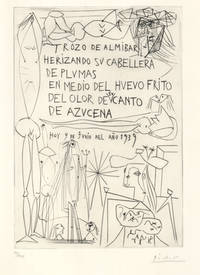 TROZO DE ALMIBAR
HERIZANDO SU CABELLERA
DE PLVMAS
EN MEDIO DEL HVEVO FRITO
DEL OLOR DE SU CANTO
DE AZVCENA
HOY 9 DE JUNIO DEL AÑO 1939
Picasso